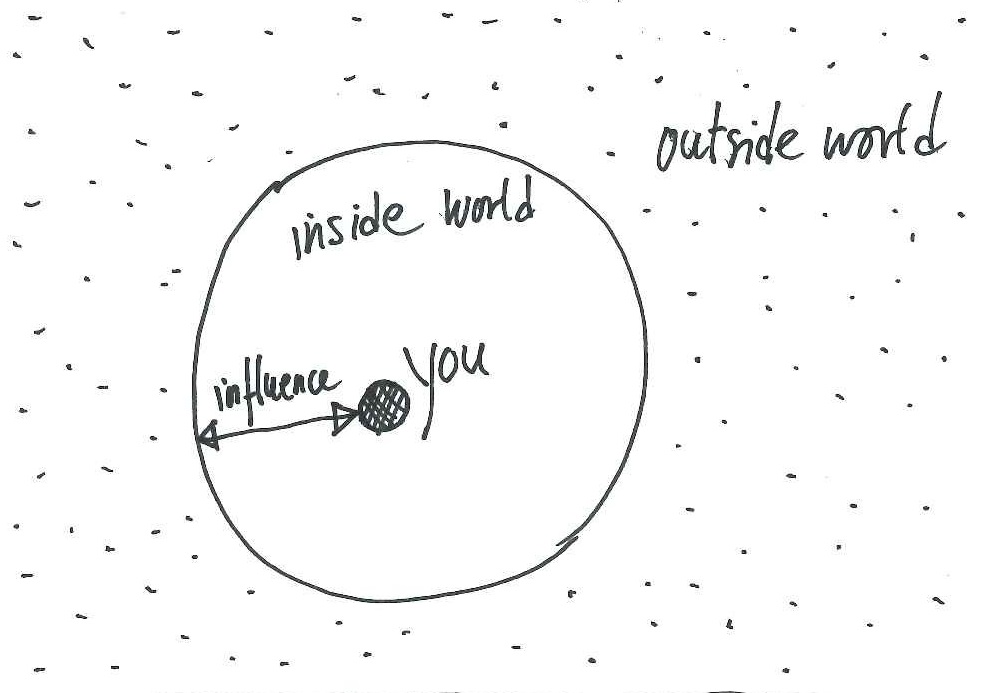 outside world
inside world
you
influence